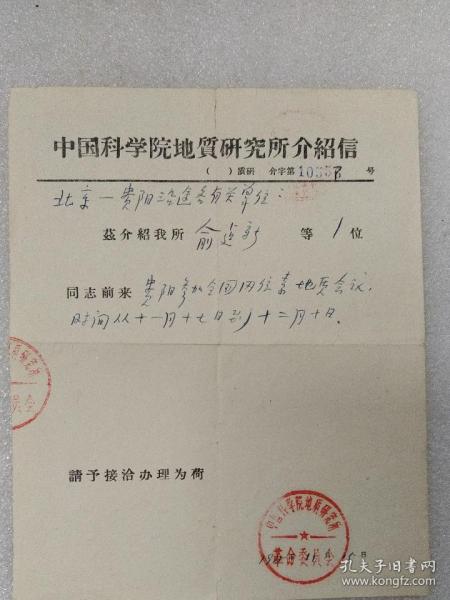 中国科学院地質研究所介紹信
（ ）質研 介字第 10557 号
北京—贵阳沿途各有关单位：
茲介紹我所 俞 新 等 1 位
同志前来 贵阳参加全国同位素地质会议，
时间从十一月十七日到十二月十日。
請予接洽办理为荷
中国科学院地质研究所
革命委员会
日
研究所
员会
孔夫子旧书网